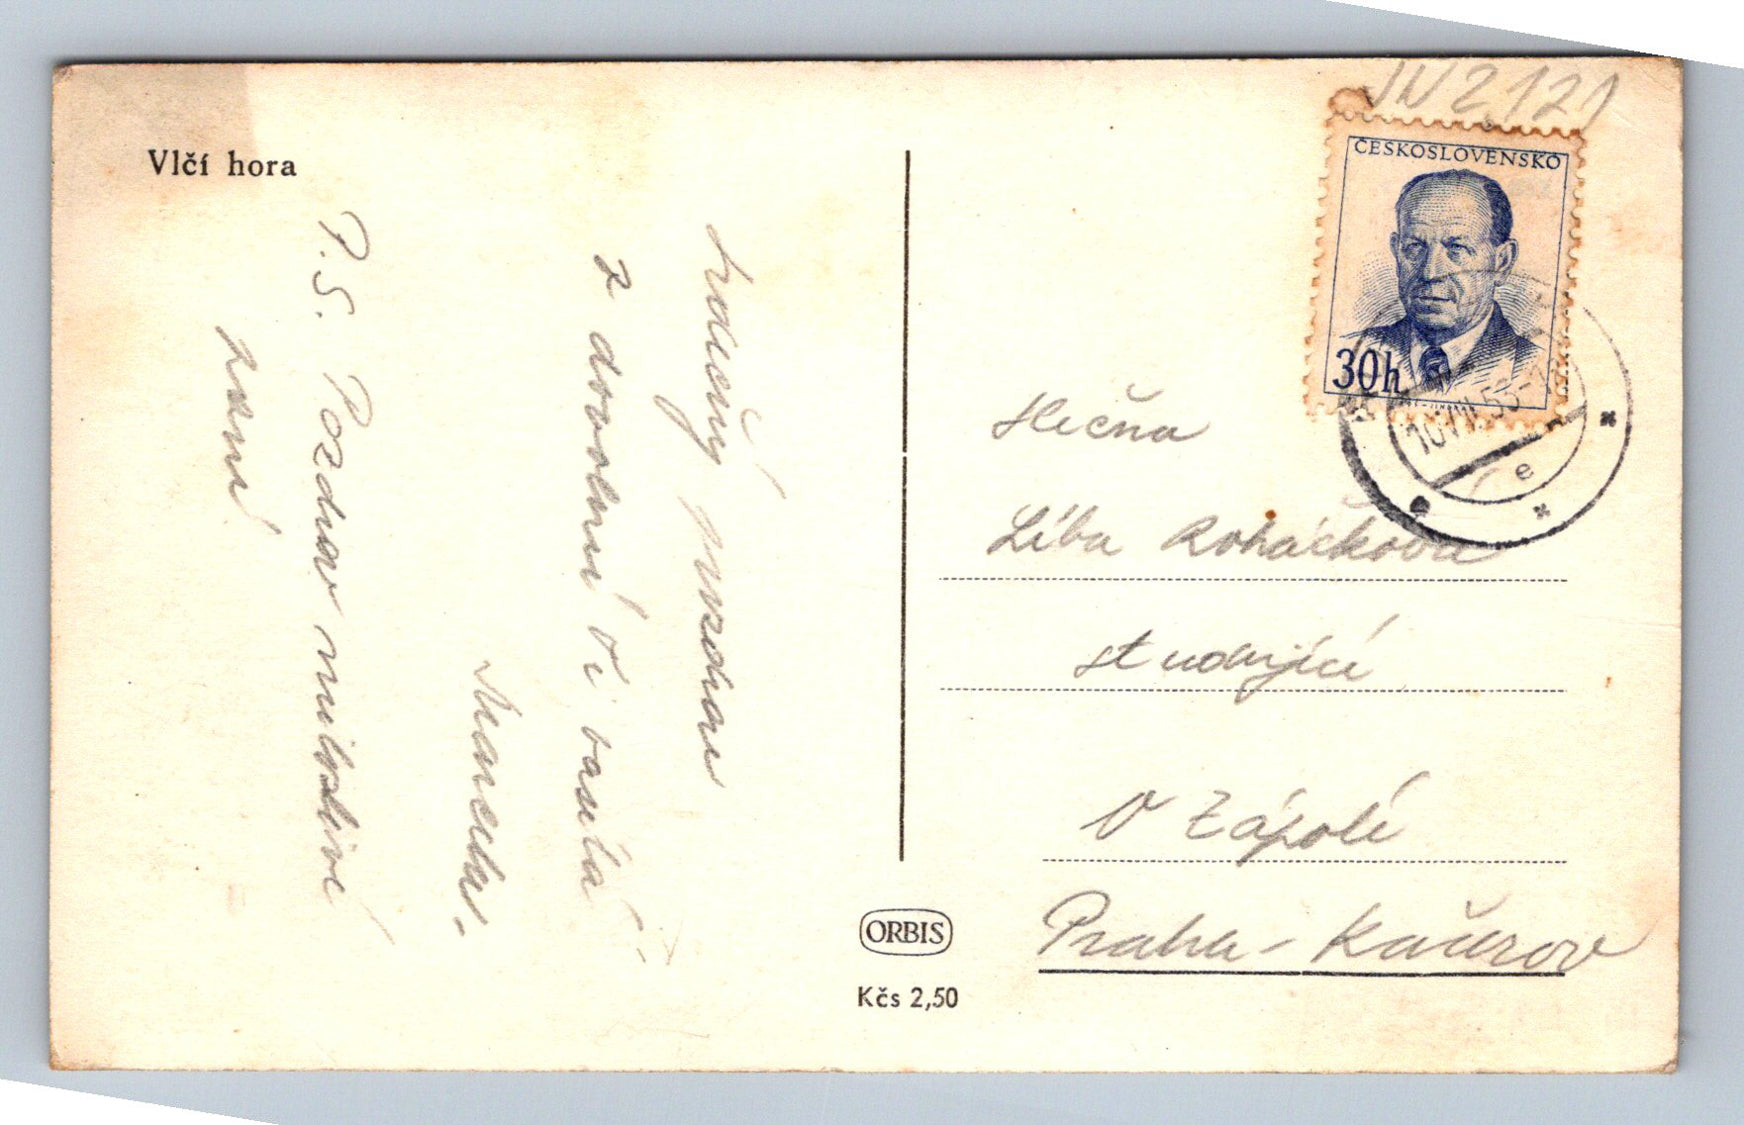 Vlčí hora
Srdečný pozdrav
z dovolené Ti zasílá
P.S. Pozdrav milostivé
paní
ORBIS
Kčs 2,50
JN 2121
ČESKOSLOVENSKO
30h
10.VIII.53
e
Slečna
Líba Roháčková
studující
V Zápolí
Praha - Kačerov